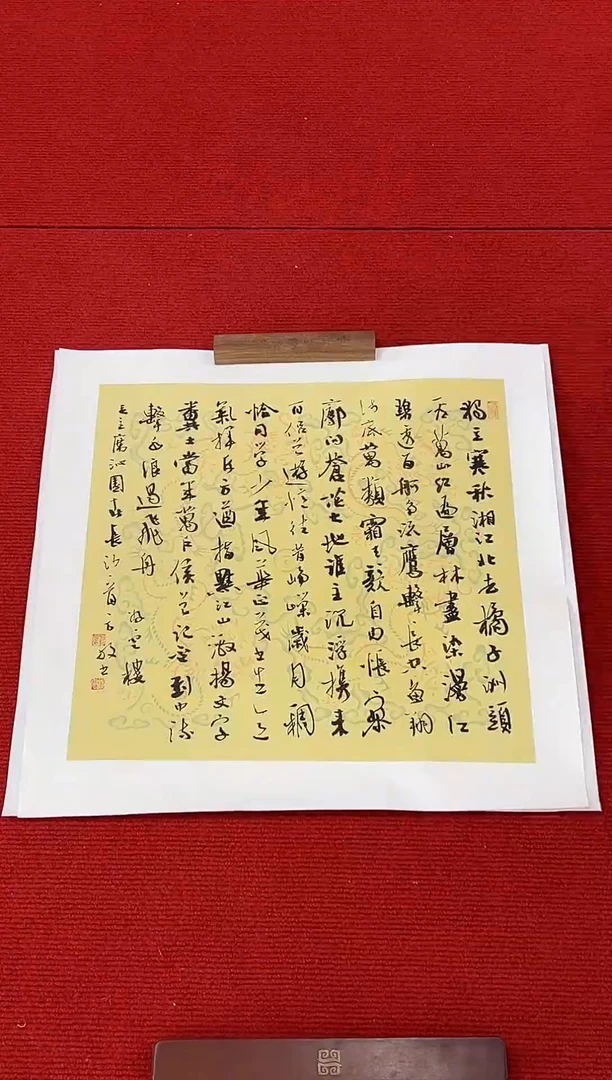 獨立寒秋湘江北去橘子洲頭
看萬山紅遍層林盡染漫江
碧透百舸爭流鷹擊長空魚翔
淺底萬類霜天競自由悵寥
廓問蒼茫大地誰主沉浮攜來
百侶曾遊憶往昔崢嶸歲月稠
恰同學少年風華正茂書生意
氣揮斥方遒指點江山激揚文字
糞土當年萬戶侯曾記否到中流
擊水浪遏飛舟
毛主席沁園春長沙一首